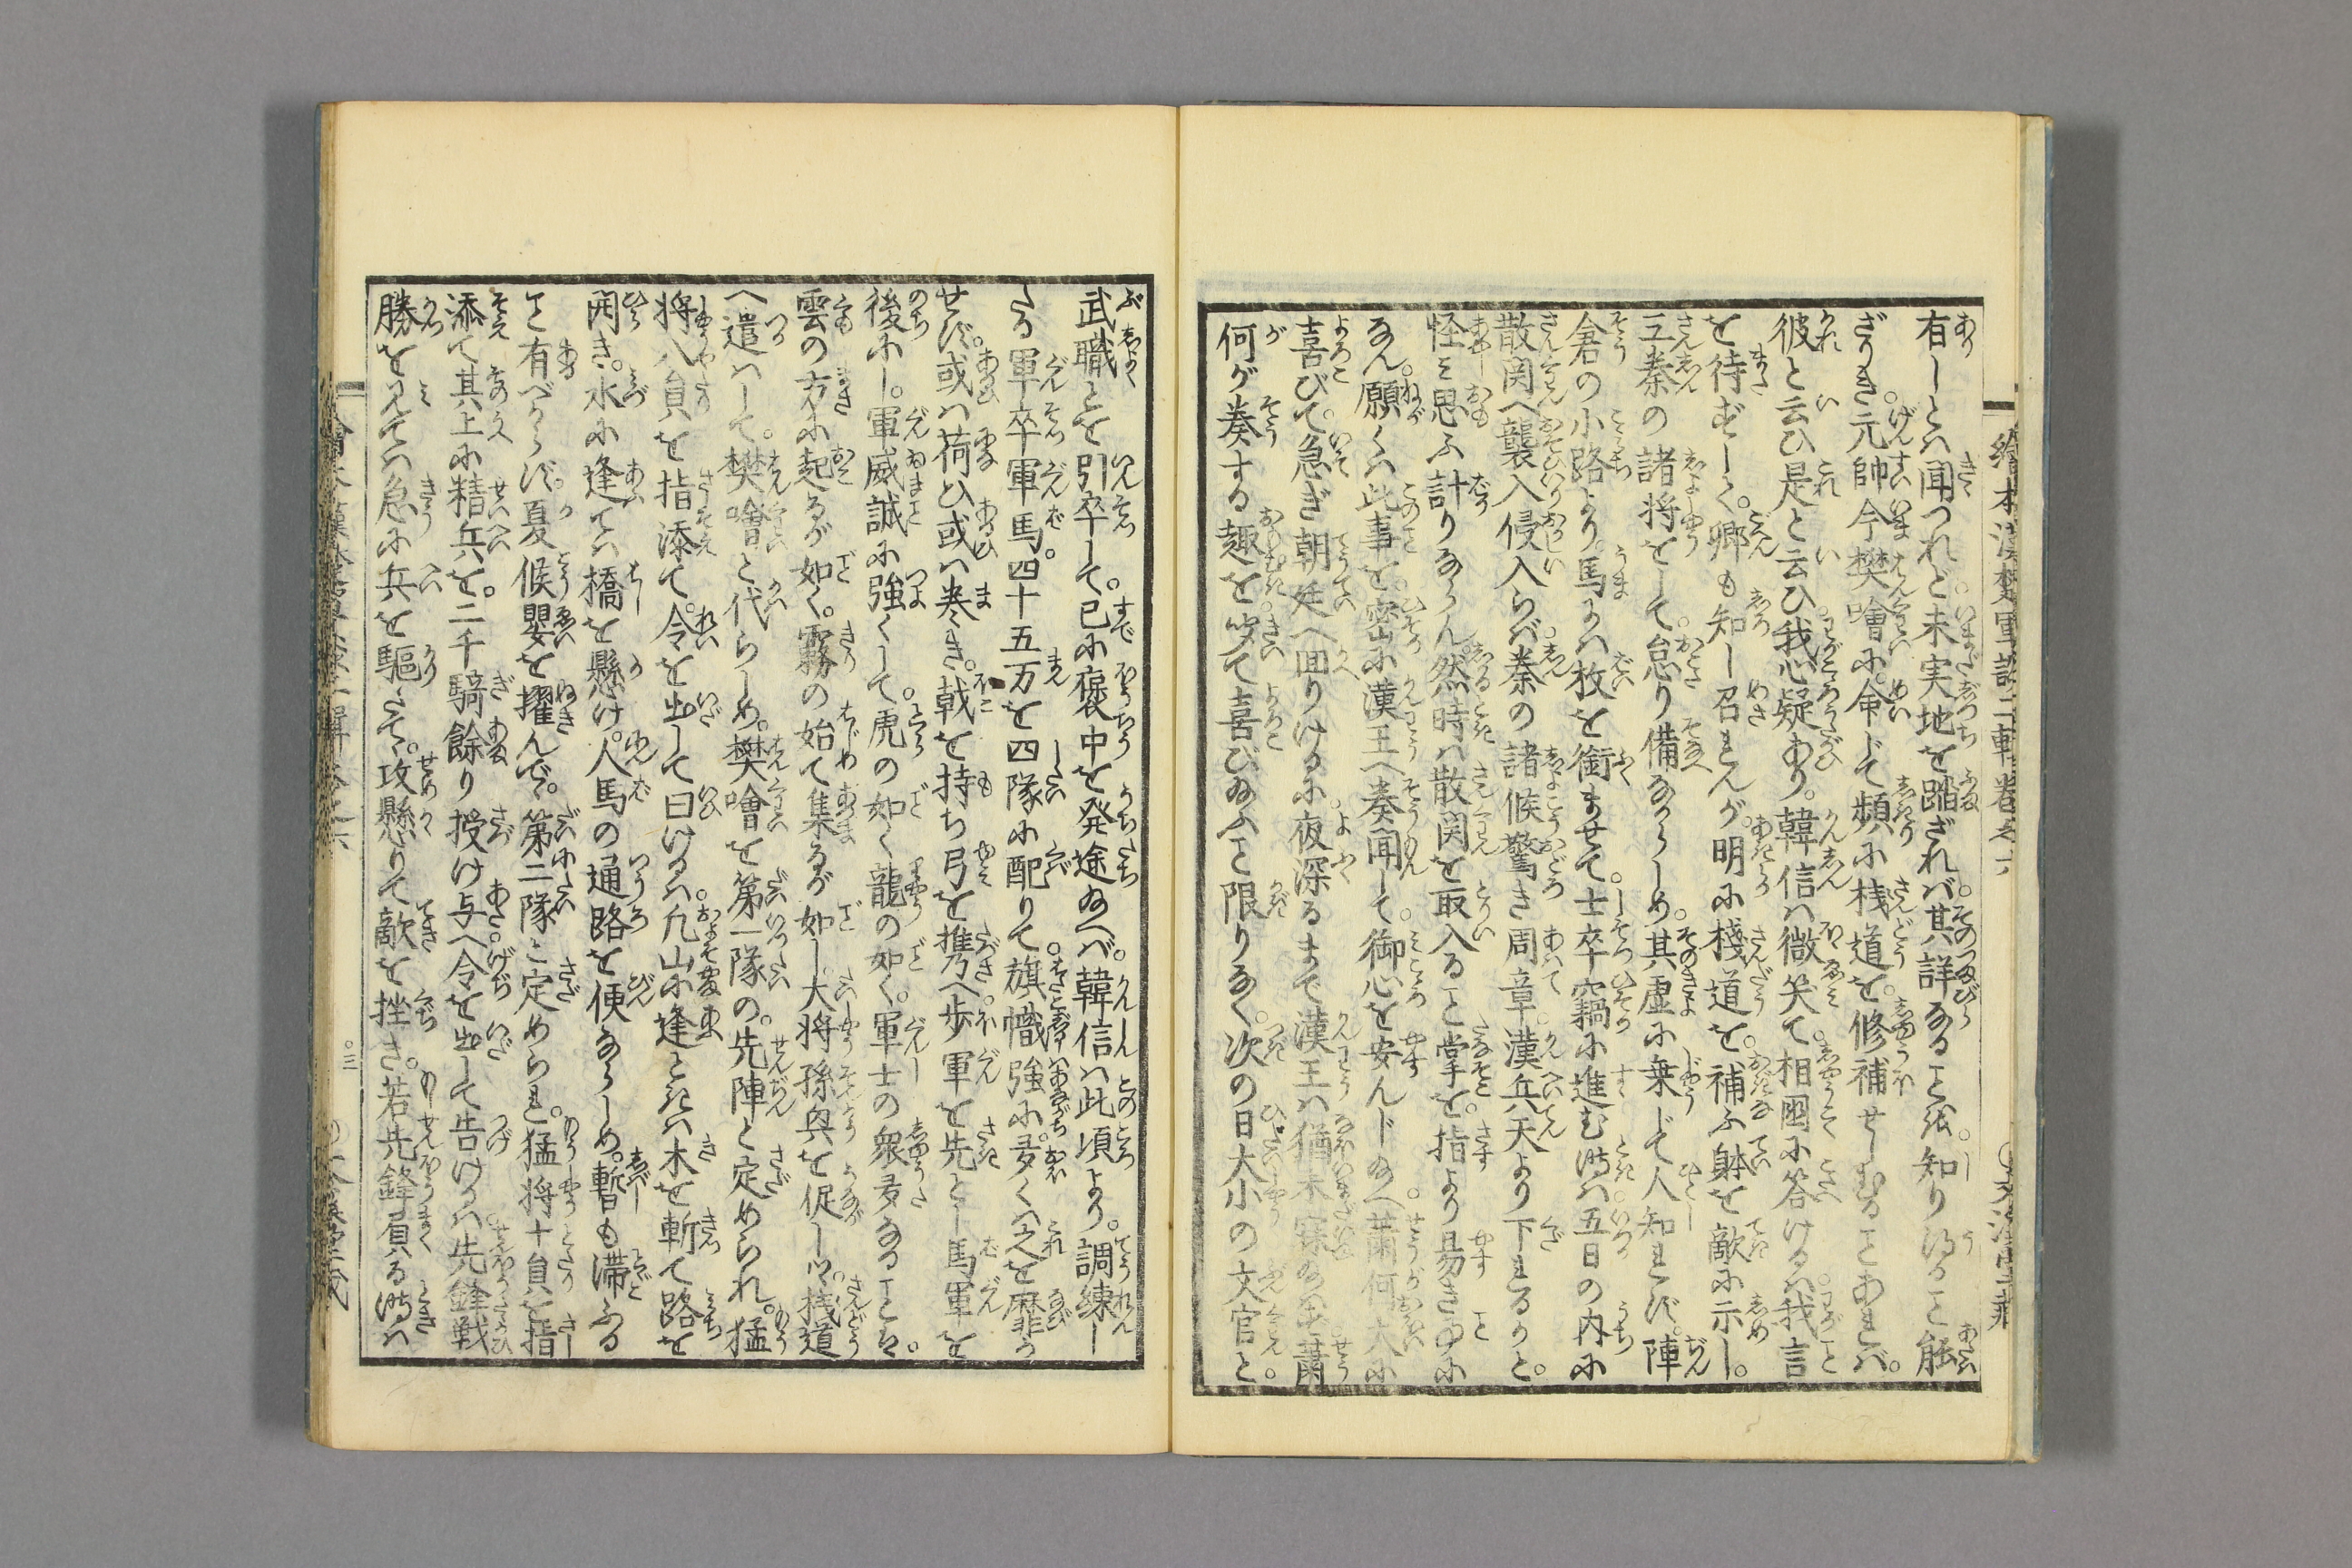 繪本漢楚軍談二輯巻之六
有しとハ聞つれど。未実地を踏ざれバ。其詳なること。知り得ること能
ざりき。元帥今樊噲に。命じて頻に桟道を。修補せしむることあれバ。
彼と云ひ是と云ひ。我心疑あり。韓信ハ微笑て。相囶に答けるハ。我言
を待ずしく。卿も知し召れんが。明に棧道を。補ふ躰を敵に示し。
三秦の諸将をして。怠り備なからしめ。其虚に乗じて人知れず。陣
倉の小路より。馬にハ枚を銜ませて。士卒竊に進む時ハ。五日の内に
散関へ襲入侵入らバ。秦の諸候驚き周章。漢兵天より下れるかと。
怪ミ思ふ計りならん。然時ハ散関を取入ること掌を。指より易き事に
なん。願くハ此事を。密に漢王へ奏聞して。御心を安んじ給へ。蕭何大に
喜びて。急ぎ朝廷へ囬りけるに。夜深るまで漢王ハ猶未寐給ハず。蕭
何が奏する趣を。聞て喜び給ふこと限りなく。次の日大小の文官と。
武職とを引卒して。已に褒中を発途給へバ。韓信ハ此頃より。調練し
たる軍卒軍馬。四十五万を四隊に配りて。旗幟強に。多くハ之を靡か
せず。或ハ荷ひ或ハ巻き。戟を持ち弓を携へ。歩軍を先とし馬軍を
後にし。軍威誠に強くして。虎の如く龍の如く。軍士の衆多なること。
雲の方に起るが如く。霧の始て集るが如し。大将孫興を促しツヽ。桟道
へ遣ハして。樊噲と代らしめ。樊噲を第一隊の。先陣と定められ。猛
将八員を指添て。令を出して曰けるハ。凡山に逢ときハ木を斬て路を
開き。水に逢てハ橋を懸け。人馬の通路を便ならしめ。暫も滞ふる
こと有べからず。夏候嬰を擢んで。第二隊と定められ。猛将十員を指
添て其上に精兵を。二千騎餘り授け与へ。令を出して告けるハ。先鋒戦
勝を見てハ急に兵を驅たて。攻懸りて敵を挫き。若先鋒負る時ハ
三